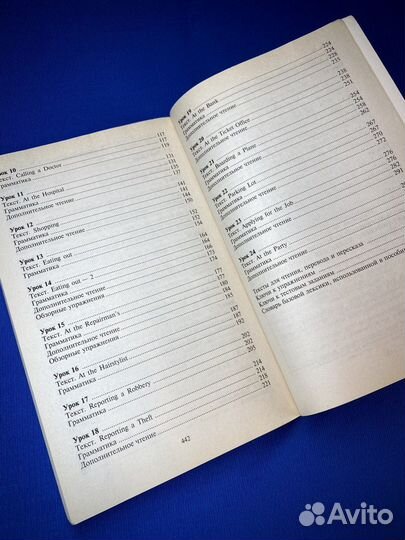 Урок 10
Текст. Calling a Doctor
Грамматика
Урок 11
Текст. At the Hospital
Грамматика
Дополнительное чтение
Урок 12
Текст. Shopping
Дополнительное чтение
Урок 13
Текст. Eating out
Грамматика
Урок 14
Текст. Eating out — 2
Дополнительное чтение
Обзорные упражнения
Урок 15
Текст. At the Repairman's
Дополнительное чтение
Обзорные упражнения
Урок 16
Текст. At the Hairstylist
Грамматика
Урок 17
Текст. Reporting a Robbery
Грамматика
Урок 18
Текст. Reporting a Theft
Грамматика
Дополнительное чтение
117
117
119
131
135
137
141
141
144
150
152
152
154
164
164
174
177
177
180
184
185
187
187
192
202
202
205
214
214
218
221
442
Урок 19
Текст. At the Bank
Грамматика
Дополнительное чтение
Урок 20
Текст. At the Ticket Office
Грамматика
Дополнительное чтение
Урок 21
Текст. Boarding a Plane
Грамматика
Урок 22
Текст. Parking Lot
Грамматика
Урок 23
Текст. Applying for the Job
Грамматика
Урок 24
Текст. At the Party
Дополнительное чтение
Тексты для чтения, перевода и пересказа
Ключи к упражнениям
Ключи к тестовым заданиям
Словарь базовой лексики, использованной в пособии
224
224
228
235
238
238
251
254
254
258
262
267
267
270
272
276
Avito